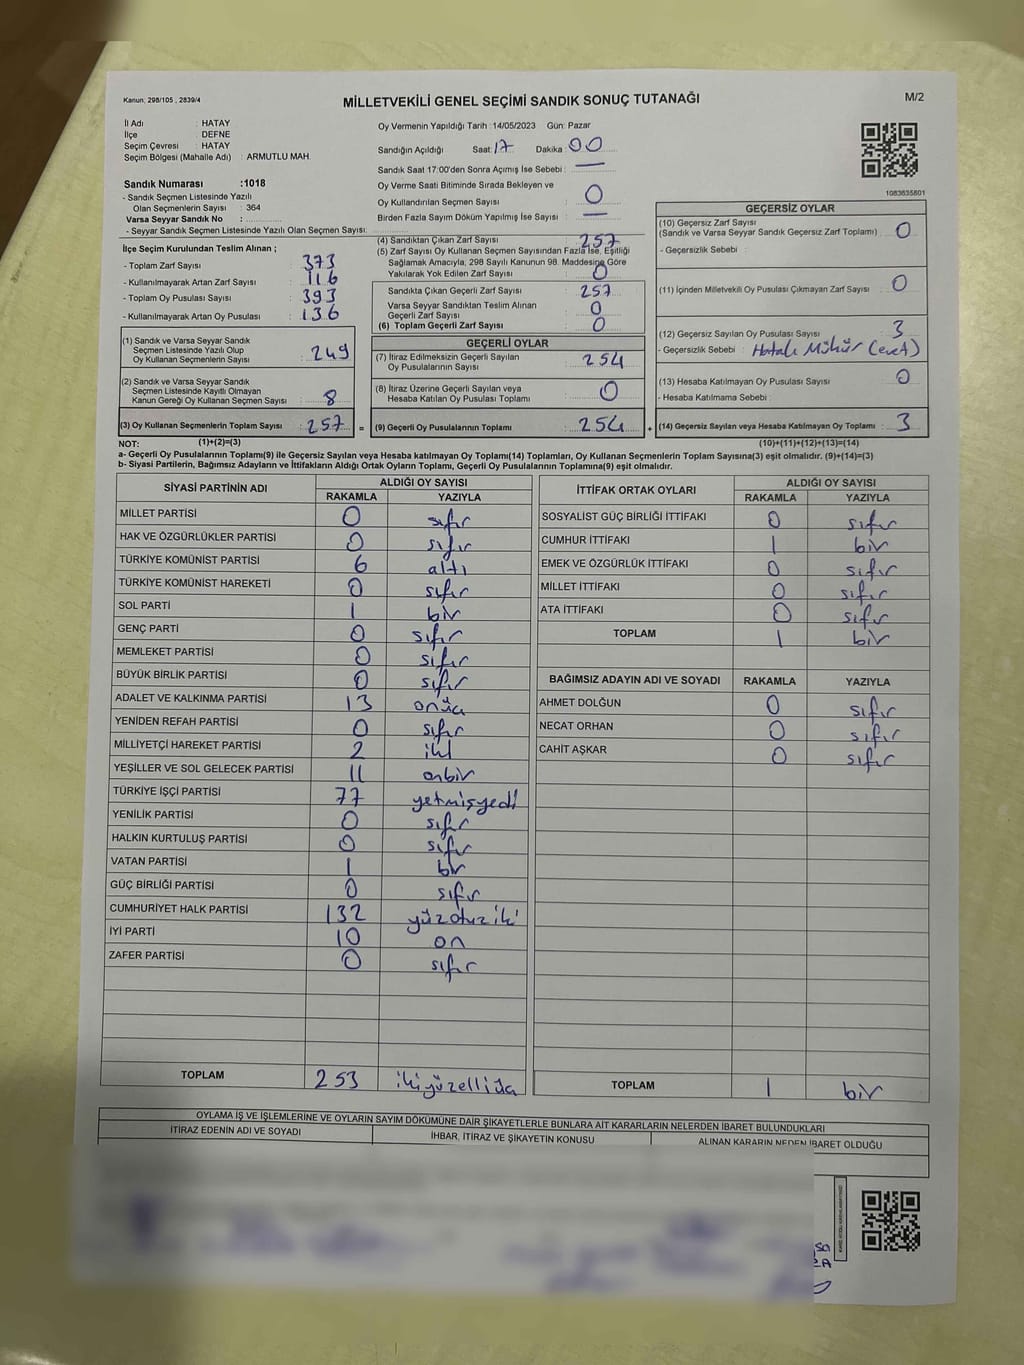 Kanun; 298/105 , 2839/4
MİLLETVEKİLİ GENEL SEÇİMİ SANDIK SONUÇ TUTANAĞI
M/2
İl Adı : HATAY
İlçe : DEFNE
Seçim Çevresi : HATAY
Seçim Bölgesi (Mahalle Adı) : ARMUTLU MAH.
Sandık Numarası :1018
- Sandık Seçmen Listesinde Yazılı
Olan Seçmenlerin Sayısı : 364
Varsa Seyyar Sandık No :
- Seyyar Sandık Seçmen Listesinde Yazılı Olan Seçmen Sayısı:
Oy Vermenin Yapıldığı Tarih :14/05/2023 Gün: Pazar
Sandığın Açıldığı Saat: 17 Dakika : 00
Sandık Saat 17:00'den Sonra Açımış İse Sebebi : —
Oy Verme Saati Bitiminde Sırada Bekleyen ve
Oy Kullandırılan Seçmen Sayısı : 0
Birden Fazla Sayım Döküm Yapılmış İse Sayısı : —
1083635801
İlçe Seçim Kurulundan Teslim Alınan ;
- Toplam Zarf Sayısı : 373
- Kullanılmayarak Artan Zarf Sayısı : 116
- Toplam Oy Pusulası Sayısı : 393
- Kullanılmayarak Artan Oy Pusulası : 136
(1) Sandık ve Varsa Seyyar Sandık
Seçmen Listesinde Yazılı Olup
Oy Kullanan Seçmenlerin Sayısı : 249
(2) Sandık ve Varsa Seyyar Sandık
Seçmen Listesinde Kayıtlı Olmayan
Kanun Gereği Oy Kullanan Seçmen Sayısı : 8
(3) Oy Kullanan Seçmenlerin Toplam Sayısı : 257 =
(4) Sandıktan Çıkan Zarf Sayısı : 257
(5) Zarf Sayısı Oy Kullanan Seçmen Sayısından Fazla İse, Eşitliği
Sağlamak Amacıyla, 298 Sayılı Kanunun 98. Maddesine Göre
Yakılarak Yok Edilen Zarf Sayısı : 0
Sandıkta Çıkan Geçerli Zarf Sayısı : 257
Varsa Seyyar Sandıktan Teslim Alınan
Geçerli Zarf Sayısı : 0
(6) Toplam Geçerli Zarf Sayısı : 0
GEÇERLİ OYLAR
(7) İtiraz Edilmeksizin Geçerli Sayılan
Oy Pusulalarının Sayısı : 254
(8) İtiraz Üzerine Geçerli Sayılan veya
Hesaba Katılan Oy Pusulası Toplamı : 0
(9) Geçerli Oy Pusulalarının Toplamı : 254 +
GEÇERSİZ OYLAR
(10) Geçersiz Zarf Sayısı
(Sandık ve Varsa Seyyar Sandık Geçersiz Zarf Toplamı) : 0
- Geçersizlik Sebebi :
(11) İçinden Milletvekili Oy Pusulası Çıkmayan Zarf Sayısı : 0
(12) Geçersiz Sayılan Oy Pusulası Sayısı : 3
- Geçersizlik Sebebi : Hatalı Mühür (evet)
(13) Hesaba Katılmayan Oy Pusulası Sayısı : 0
- Hesaba Katılmama Sebebi :
(14) Geçersiz Sayılan veya Hesaba Katılmayan Oy Toplamı : 3
NOT: (1)+(2)=(3) (10)+(11)+(12)+(13)=(14)
a- Geçerli Oy Pusulalarının Toplamı(9) ile Geçersiz Sayılan veya Hesaba katılmayan Oy Toplamı(14) Toplamları, Oy Kullanan Seçmenlerin Toplam Sayısına(3) eşit olmalıdır. (9)+(14)=(3)
b- Siyasi Partilerin, Bağımsız Adayların ve İttifakların Aldığı Ortak Oyların Toplamı, Geçerli Oy Pusulalarının Toplamına(9) eşit olmalıdır.
SİYASİ PARTİNİN ADI ALDIĞI OY SAYISI
RAKAMLA YAZIYLA
MİLLET PARTİSİ 0 sıfır
HAK VE ÖZGÜRLÜKLER PARTİSİ 0 sıfır
TÜRKİYE KOMÜNİST PARTİSİ 6 altı
TÜRKİYE KOMÜNİST HAREKETİ 0 sıfır
SOL PARTİ 1 bir
GENÇ PARTİ 0 sıfır
MEMLEKET PARTİSİ 0 sıfır
BÜYÜK BİRLİK PARTİSİ 0 sıfır
ADALET VE KALKINMA PARTİSİ 13 onüç
YENİDEN REFAH PARTİSİ 0 sıfır
MİLLİYETÇİ HAREKET PARTİSİ 2 iki
YEŞİLLER VE SOL GELECEK PARTİSİ 11 onbir
TÜRKİYE İŞÇİ PARTİSİ 77 yetmişyedi
YENİLİK PARTİSİ 0 sıfır
HALKIN KURTULUŞ PARTİSİ 0 sıfır
VATAN PARTİSİ 1 bir
GÜÇ BİRLİĞİ PARTİSİ 0 sıfır
CUMHURİYET HALK PARTİSİ 132 yüzotuziki
İYİ PARTİ 10 on
ZAFER PARTİSİ 0 sıfır
TOPLAM 253 ikiyüzelliüç
İTTİFAK ORTAK OYLARI ALDIĞI OY SAYISI
RAKAMLA YAZIYLA
SOSYALİST GÜÇ BİRLİĞİ İTTİFAKI 0 sıfır
CUMHUR İTTİFAKI 1 bir
EMEK VE ÖZGÜRLÜK İTTİFAKI 0 sıfır
MİLLET İTTİFAKI 0 sıfır
ATA İTTİFAKI 0 sıfır
TOPLAM 1 bir
BAĞIMSIZ ADAYIN ADI VE SOYADI RAKAMLA YAZIYLA
AHMET DOLĞUN 0 sıfır
NECAT ORHAN 0 sıfır
CAHİT AŞKAR 0 sıfır
TOPLAM 1 bir
OYLAMA İŞ VE İŞLEMLERİNE VE OYLARIN SAYIM DÖKÜMÜNE DAİR ŞİKAYETLERLE BUNLARA AİT KARARLARIN NELERDEN İBARET BULUNDUKLARI
İTİRAZ EDENİN ADI VE SOYADI İHBAR, İTİRAZ VE ŞİKAYETİN KONUSU ALINAN KARARIN NEDEN İBARET OLDUĞU